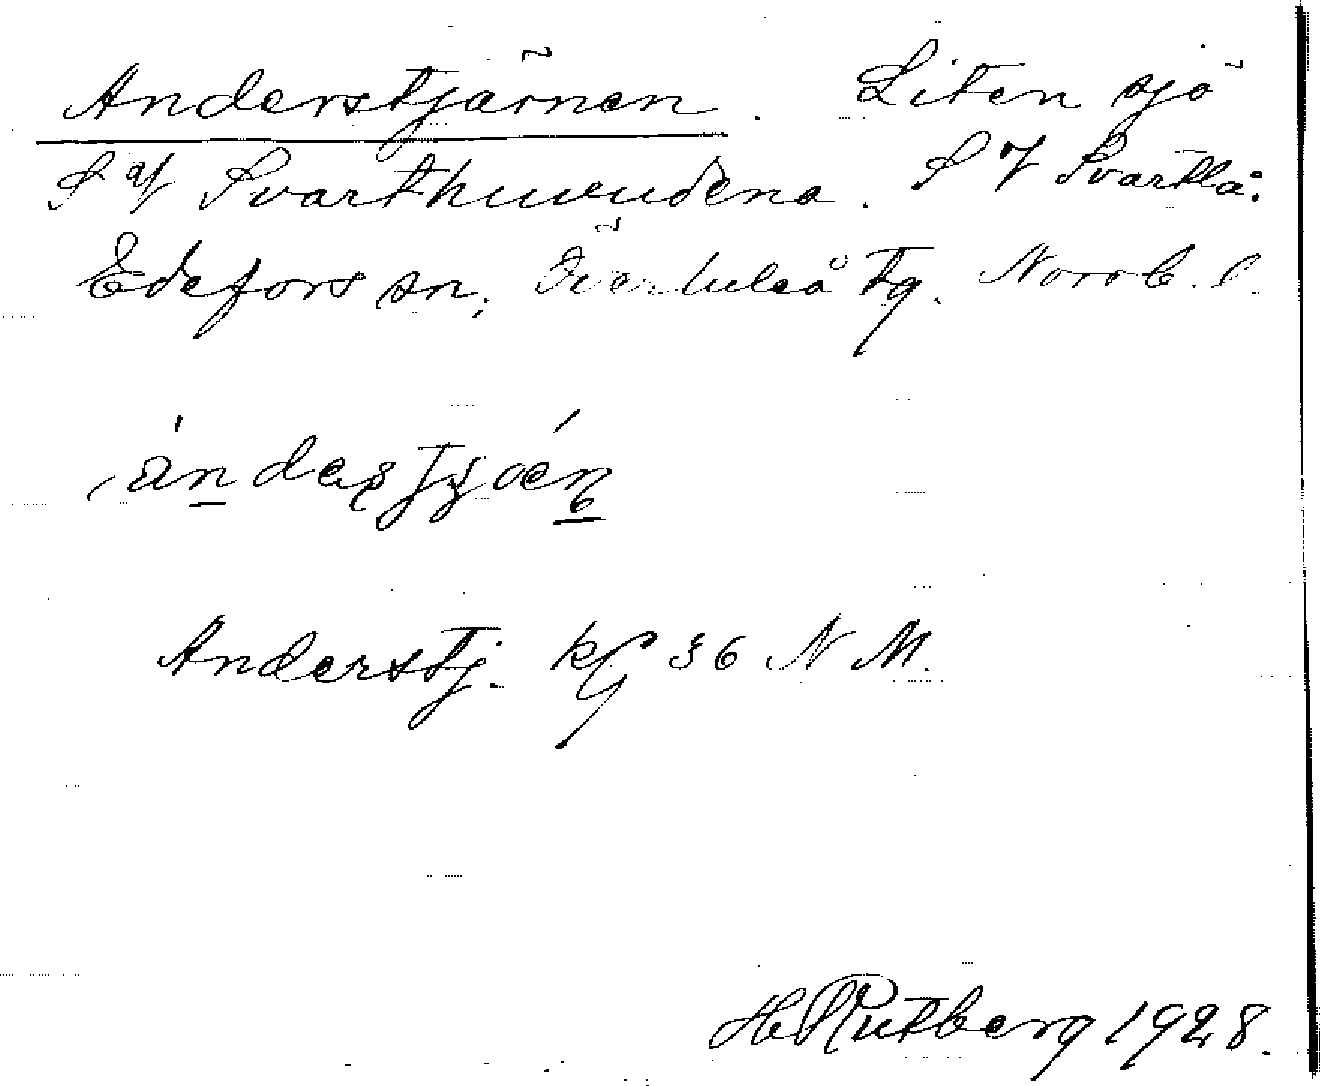 Anderstjärnen. Liten sjö
S af Svarthuvudena. S af Svartlå.
Edefors sn, Överluleå tg. Norrb. l.
Anderstj. kg 36 N M.
H. Rutberg 1928.